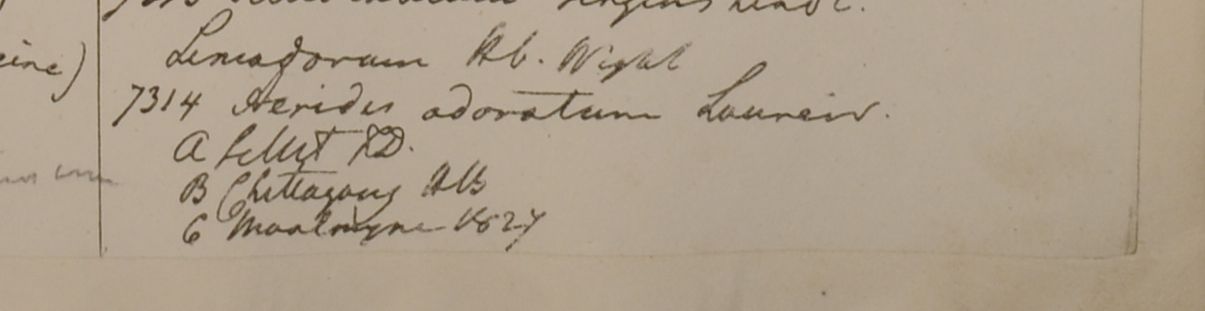 Limodorum Hb. Wight
eine)
7314 Aerides odoratum Loureir.
A Sillet FD.
B Chittagong HB
C Moalmyne 1827